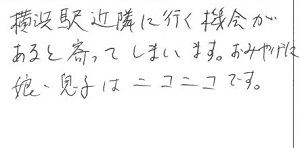 横浜駅近隣に行く機会が
あると寄ってしまいます。おみやげに
娘・息子はニコニコです。